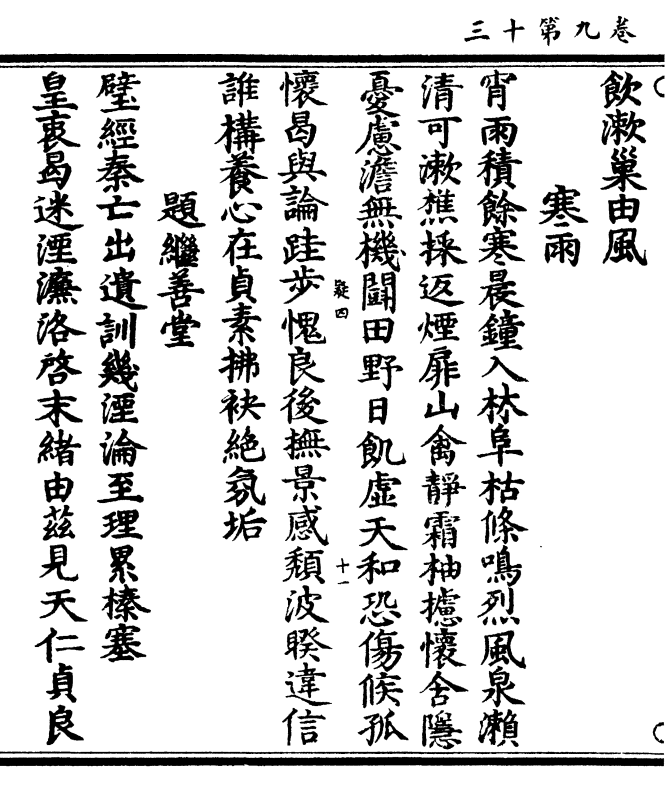 卷九第十三
飲漱巢由風
寒雨
宵雨積餘寒晨鐘入林阜枯條鳴烈風泉瀨
清可漱樵採返煙扉山禽靜霜柚攄懷舍隱
憂慮澹無機鬪田野日飢虛天和恐傷候孤
懷曷與論跬步愧良後撫景感頽波睽違信
誰構養心在貞素拂袂絶氛垢
題繼善堂
璧經秦亡出遺訓幾湮論至理累榛塞
皇衷曷迷湮濂洛啓末緒由茲見天仁貞良
疑四
十一